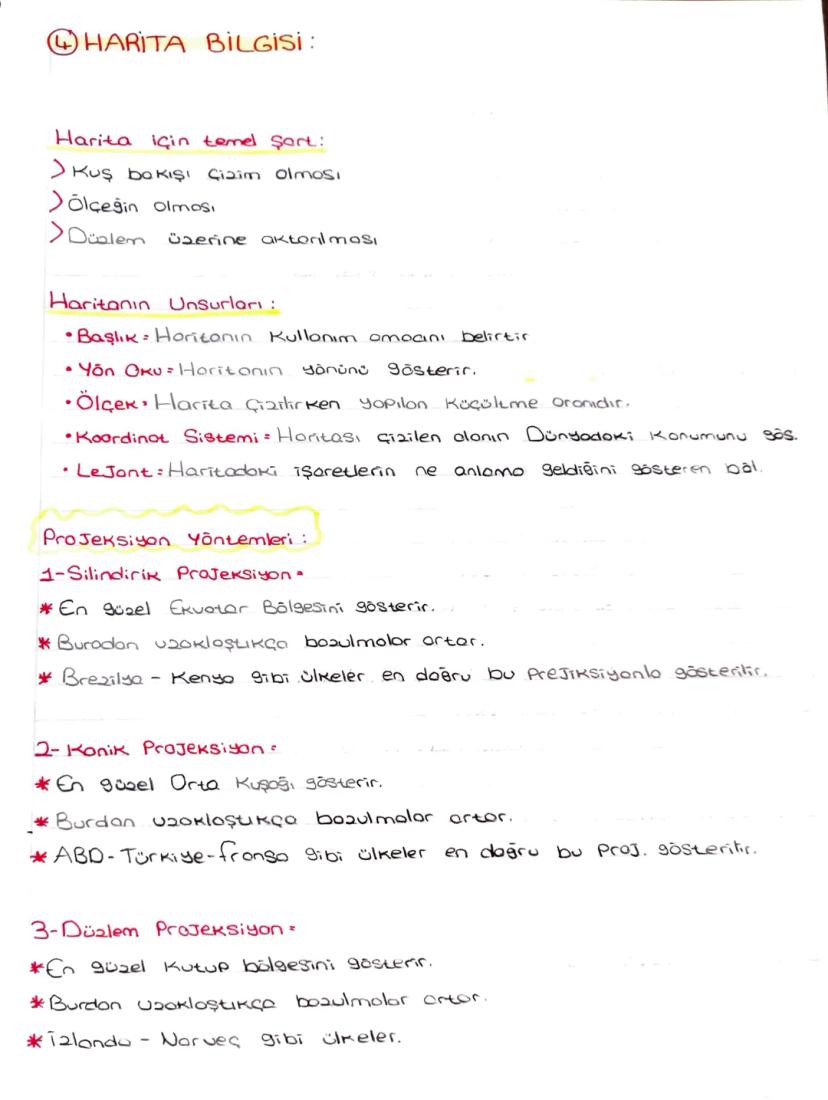 ④ HARİTA BİLGİSİ:
Harita için temel şart:
> Kuş bakışı çizim olması
> Ölçeğin olması
> Düzlem üzerine aktarılması
Haritanın Unsurları:
• Başlık = Haritanın kullanım amacını belirtir
• Yön Oku = Haritanın yönünü gösterir.
• Ölçek = Harita çizilirken yapılan küçülme oranıdır.
• Koordinat Sistemi = Haritası çizilen alanın Dünyadaki konumunu gös.
• Lejant = Haritadaki işaretlerin ne anlama geldiğini gösteren böl.
Projeksiyon Yöntemleri:
1-Silindirik Projeksiyon=
* En güzel Ekvator Bölgesini gösterir.
* Buradan uzaklaştıkça bozulmalar artar.
* Brezilya - Kenya gibi ülkeler en doğru bu prejiksiyonla gösterilir.
2- Konik Projeksiyon:
* En güzel Orta Kuşağı gösterir.
* Burdan uzaklaştıkça bozulmalar artar.
* ABD-Türkiye-fransa gibi ülkeler en doğru bu proj. gösterilir.
3-Düzlem Projeksiyon=
* En güzel Kutup bölgesini gösterir.
* Burdan uzaklaştıkça bozulmalar artar.
* İzlanda - Norveç gibi ülkeler.